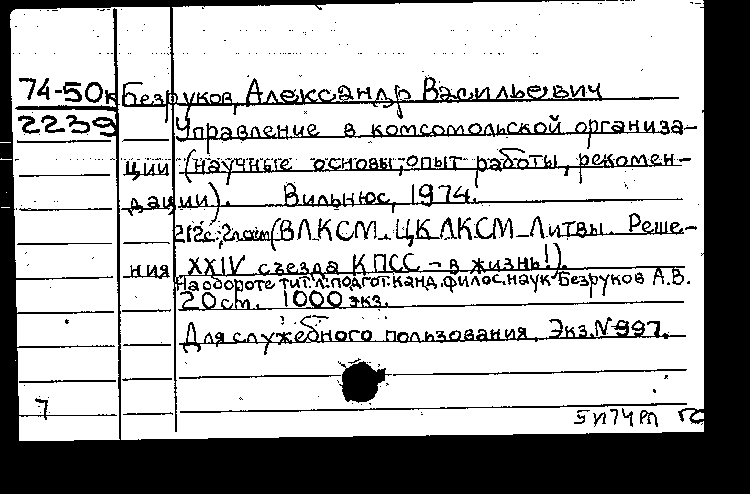 74-50к Безруков, Александр Васильевич
2239 Управление в комсомольской организа-
ции (научные основы, опыт работы, рекомен-
дации). Вильнюс, 1974.
212с.; (ВЛКСМ. ЦК ЛКСМ Литвы. Реше-
ния XXIV съезда КПСС - в жизнь!).
На обороте тит.л.: подгот. канд. филос. наук Безруков А.В.
20см. 1000 экз.
Для служебного пользования. Экз.N 997.
7